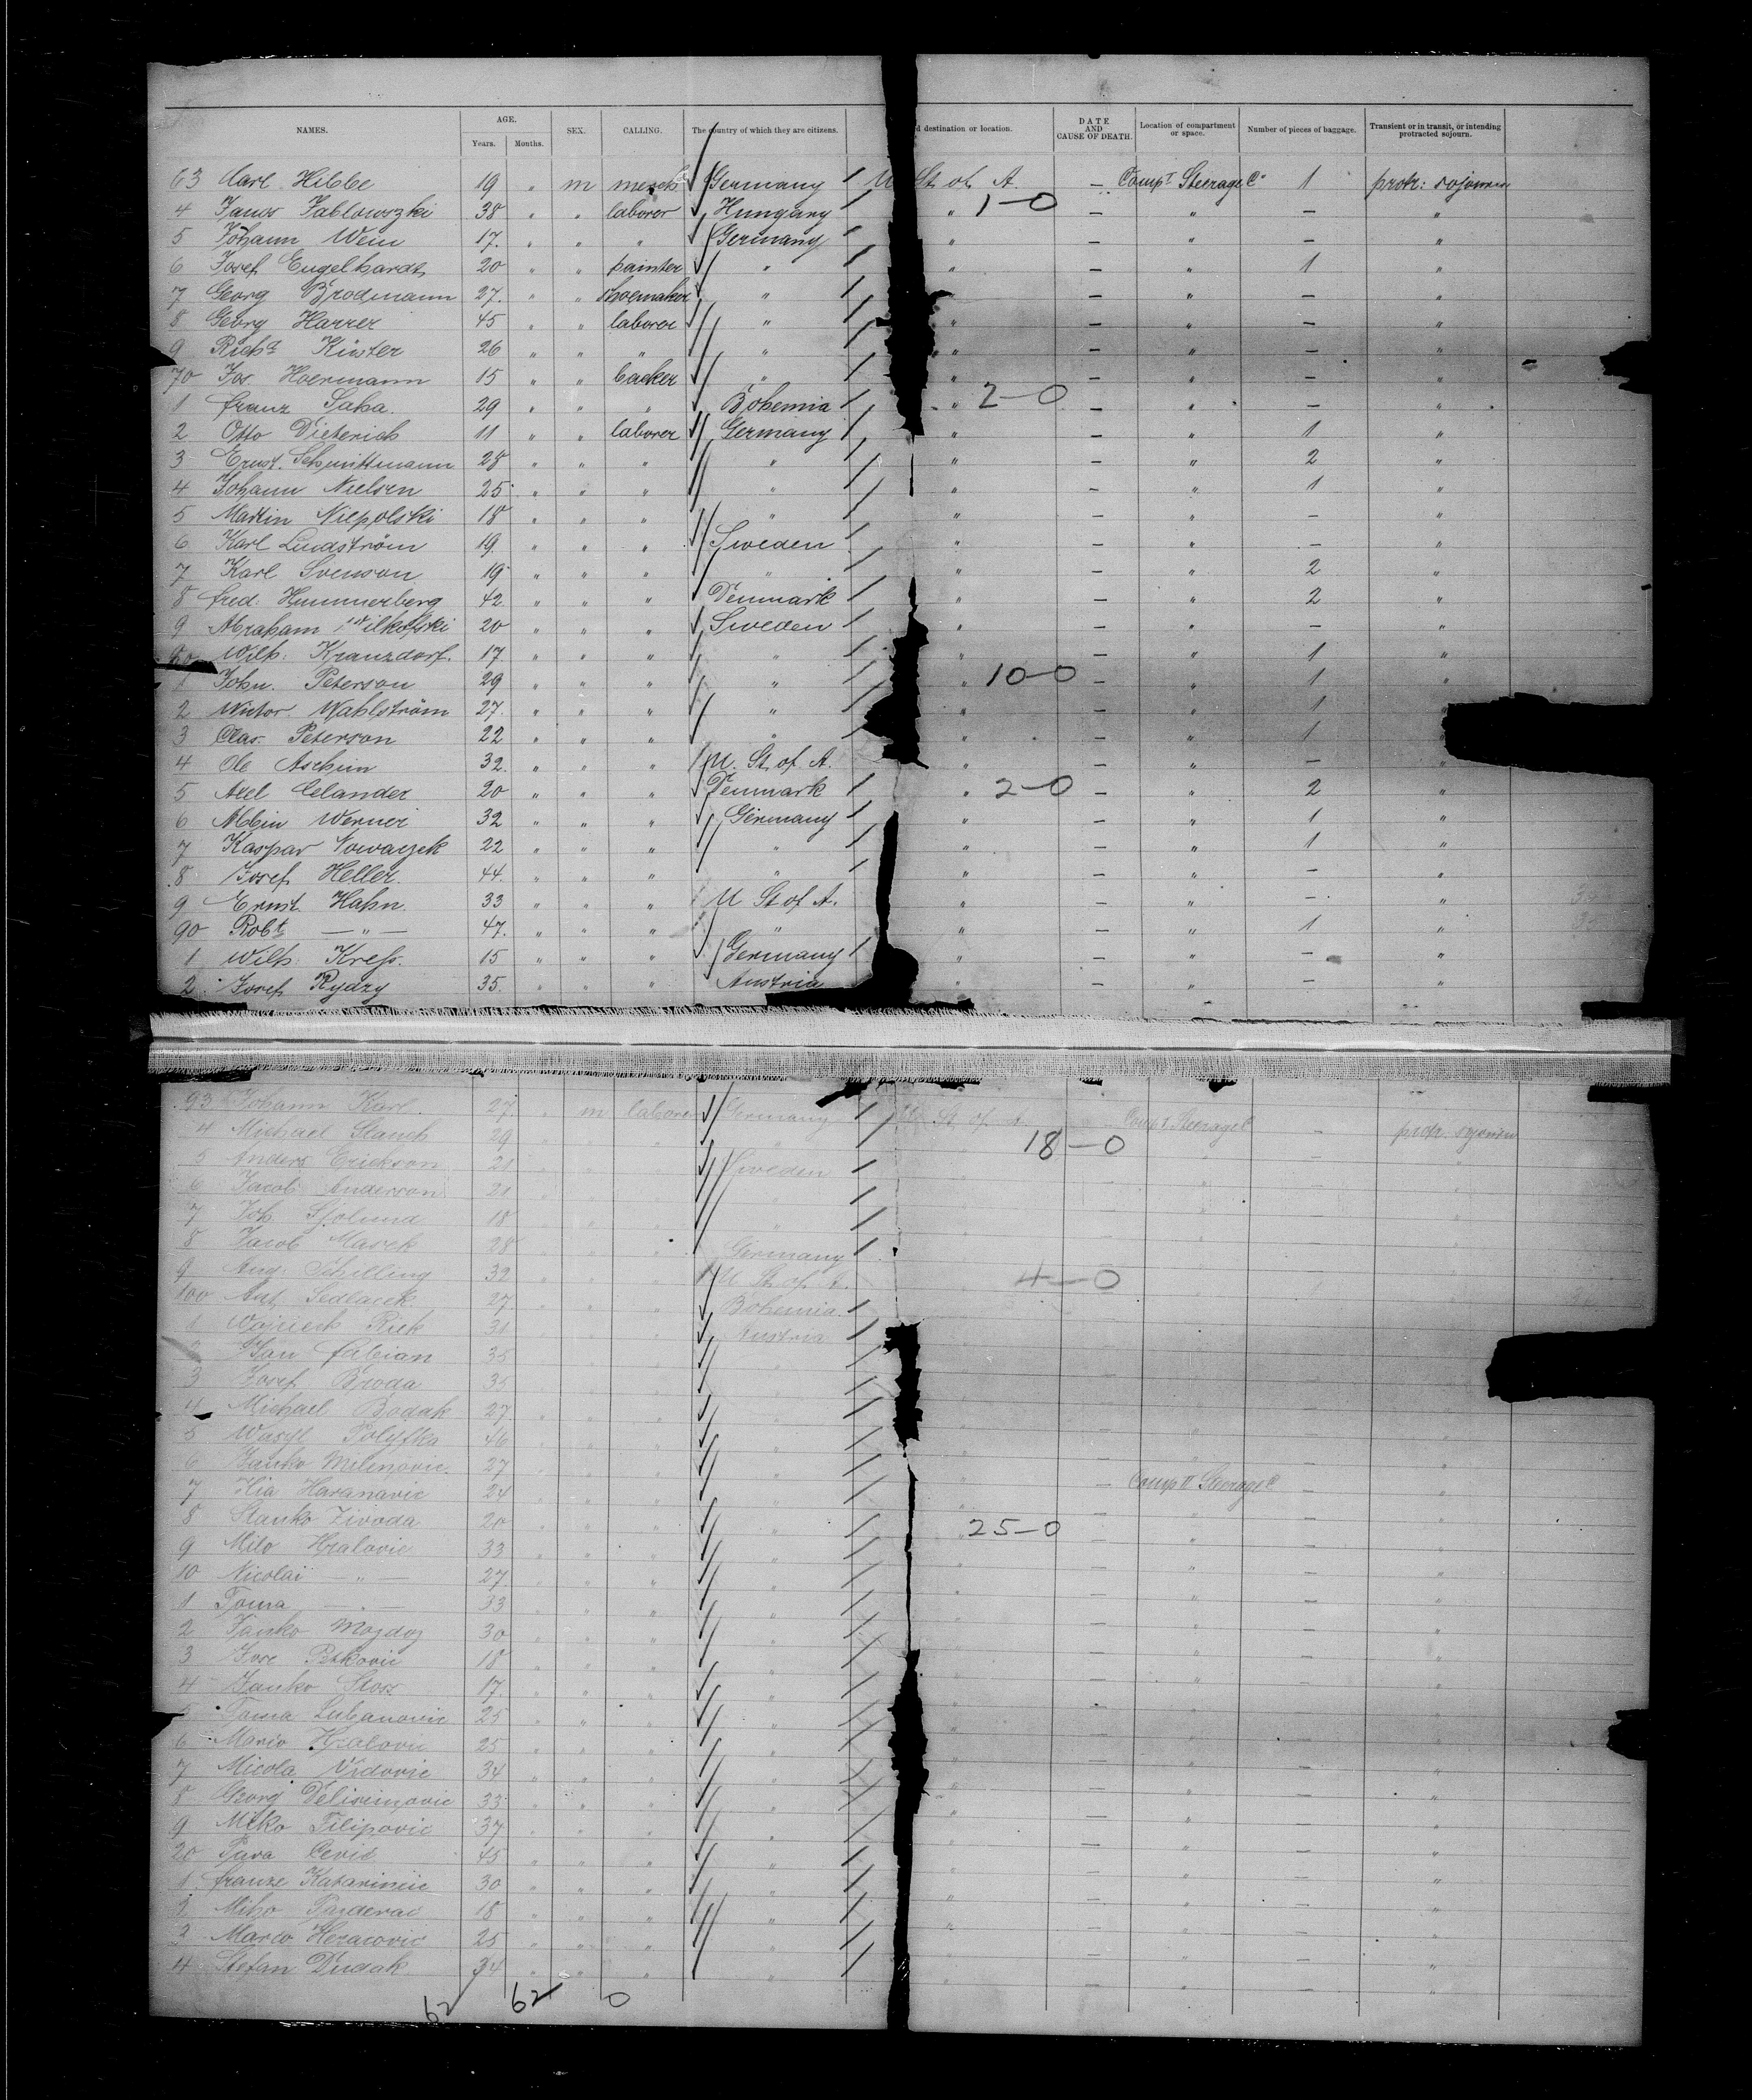 NAMES. AGE. Years. Months. SEX. CALLING. The country of which they are citizens. d destination or location. DATE AND CAUSE OF DEATH. Location of compartment or space. Number of pieces of baggage. Transient or in transit, or intending protracted sojourn.
63 Carl Hibbe 19 " m merch Germany / U St. of A. — Comp. I Steerage 1 protr: sojourn
4 Janos Jablowszki 38 " " laborer Hungary / " 1-0 — " — "
5 Johann Wein 17. " " " Germany / " — " — "
6 Josef Engelhardt 20 " " painter " / " — " 1 "
7 Georg Brodmann 27. " " shoemaker " / " — " — "
8 Georg Harrer 45 " " laborer " / " — " — "
9 Richd Küster 26 " " " " / " — " — "
70 Jos. Hoermann 15 " " backer " / " — " — "
1 Franz Saha. 29 " " " Bohemia / " 2-0 — " — "
2 Otto Dieterich 11 " " laborer Germany / " — " 1 "
3 Ernst. Schmittmann 28 " " " " / " — " 2 "
4 Johann Nielsen 25 " " " " / " — " 1 "
5 Martin Niepolski 18 " " " " / " — " — "
6 Karl Lindström 19 " " " Sweden / " — " — "
7 Karl Svenson 19 " " " " / " — " 2 "
8 Fred. Hummerberg 42 " " " Denmark / " — " 2 "
9 Abraham Wilkofski 20 " " " Sweden / " — " — "
80 Wilh: Kranzdorf. 17 " " " " / " — " 1 "
1 John. Peterson 29 " " " " / " 10-0 — " 1 "
2 Victor. Wahlström 27. " " " " / " — " 1 "
3 Clas. Peterson 22 " " " " / " — " 1 "
4 Ole Aschim 32. " " " U. St. of A. " — " — "
5 Axel Celander 20 " " " Denmark / " 2-0 — " 2 "
6 Albin Werner 32 " " " Germany / " — " 1 "
7 Kaspar Nowaczek 22 " " " " / " — " 1 "
8 Josef Heller. 44. " " " " / " — " — "
9 Ernst Hahn. 33 " " " U St of A. " — " — "
90 Robt — " — 47. " " " " " — " 1 "
1 Wilh: Kreß. 15 " " " Germany / " — " — "
2 Josef Rydzy 35. " " " Austria " — " — "
93 Johann Karl 27. " m laborer Germany / U. St. of A. — Comp I Steerage — protr. sojourn
4 Michael Stauch 29 " " " " / 18-0 — "
5 Anders Erickson 21 " " " Sweden / — "
6 Jacob Anderson 21 " " " " / — "
7 Joh Sjolund 18 " " " " / — "
8 Jacob Masek 28 " " " Germany / — "
9 Aug. Schilling 32 " " " U St. of A. 4-0 "
100 Ant. Sedlacek 27 " " " Bohemia. / "
1 Wojciech Rick 31 " " " Austria / "
2 Jan Fabian 35 " " " " /
3 Josef Broda 35 " " " " /
4 Michael Bodak 27 " " " " / — "
5 Wasyl Polyfka 46 " " " " / — "
6 Janko Milinovic. 27 " " " " / — "
7 Ilia Haranavic 24 " " " " / " — Comp II Steerage — "
8 Stanko Zivoda 20 " " " " / " 25-0 — " — "
9 Milo Hralovic 33 " " " " / — " — "
10 Nicolai — " — 27. " " " " / " — " — "
1 Toma — " — 33 " " " " / " — " — "
2 Janko Mozdoz 30 " " " " / " — " — "
3 Jose Petkovic 18 " " " " / " — " — "
4 Janko Stoss 17. " " " " / " — " — "
5 Toma Lubanovic 25 " " " " / " — " — "
6 Mario Hralovic 25 " " " " / " — " — "
7 Micola Vidovic 34 " " " " / " — " — "
8 Georg Delisimovic 33 " " " " / " — " — "
9 Mitko Filipovic 37 " " " " / " — " — "
20 Pava Cevic 45 " " " " / " — " — "
1 Franze Katarincic 30 " " " " / " — " — "
2 Miho Pazderac 18 " " " " / " — " — "
3 Marco Heracovic 25 " " " " / " — " — "
4 Stefan Dudak 34 " " " " / " — " — "
62 62 0